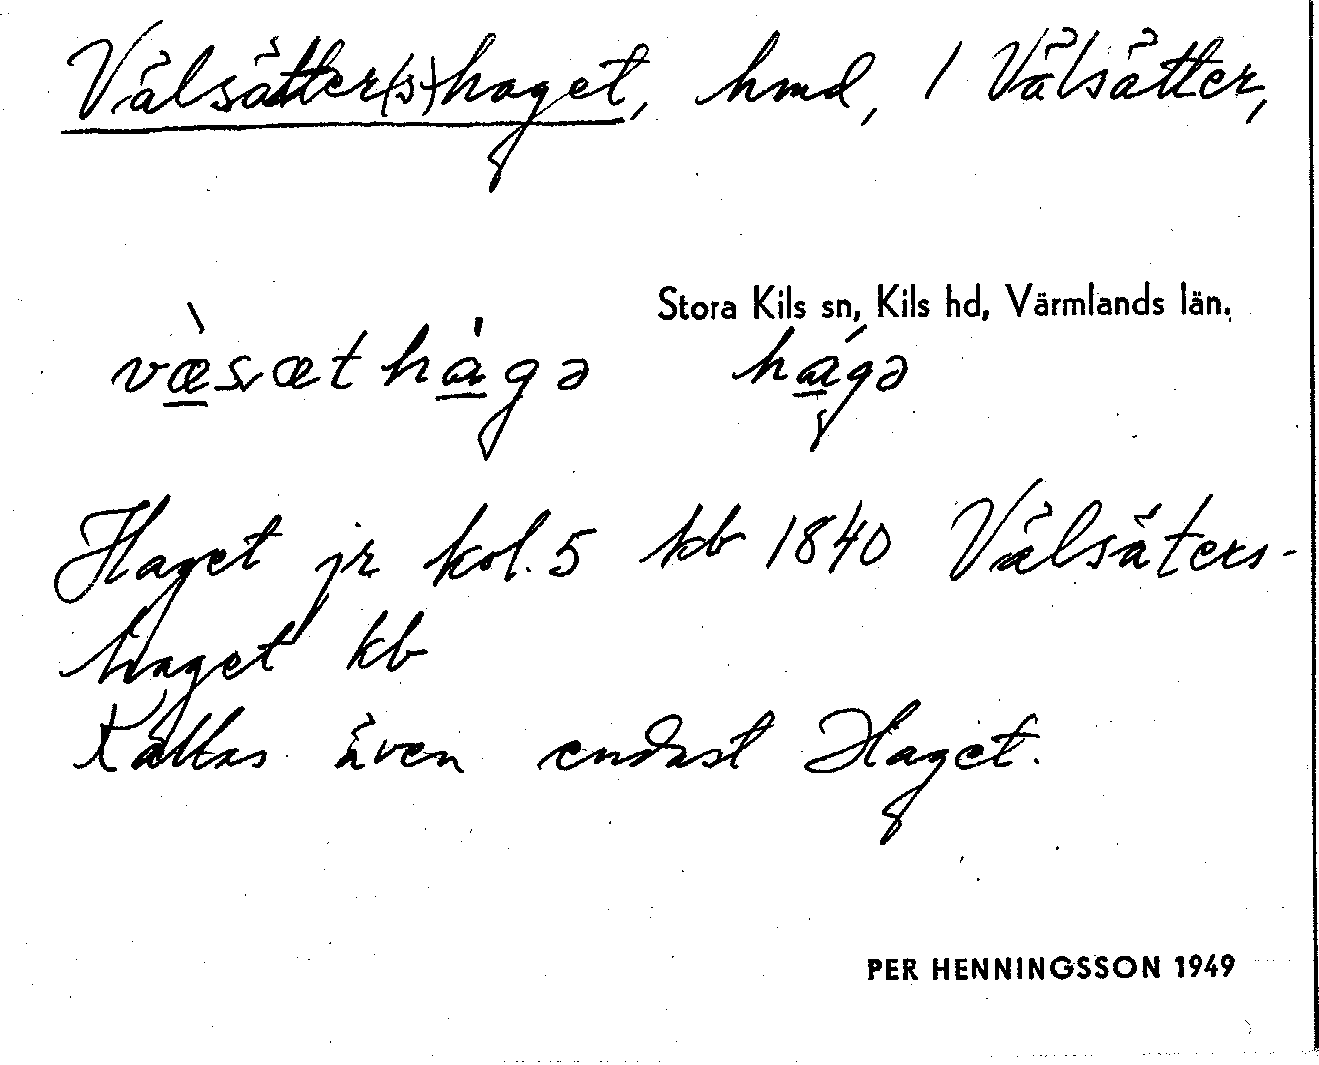 Välsätter(s)haget, hmd, 1 Välsätter,
Stora Kils sn, Kils hd, Värmlands län.
væ̀sæthágə hágə
Haget jr kol. 5 kb 1840 Välsäters-
haget kb
Kallas även endast Haget.
PER HENNINGSSON 1949